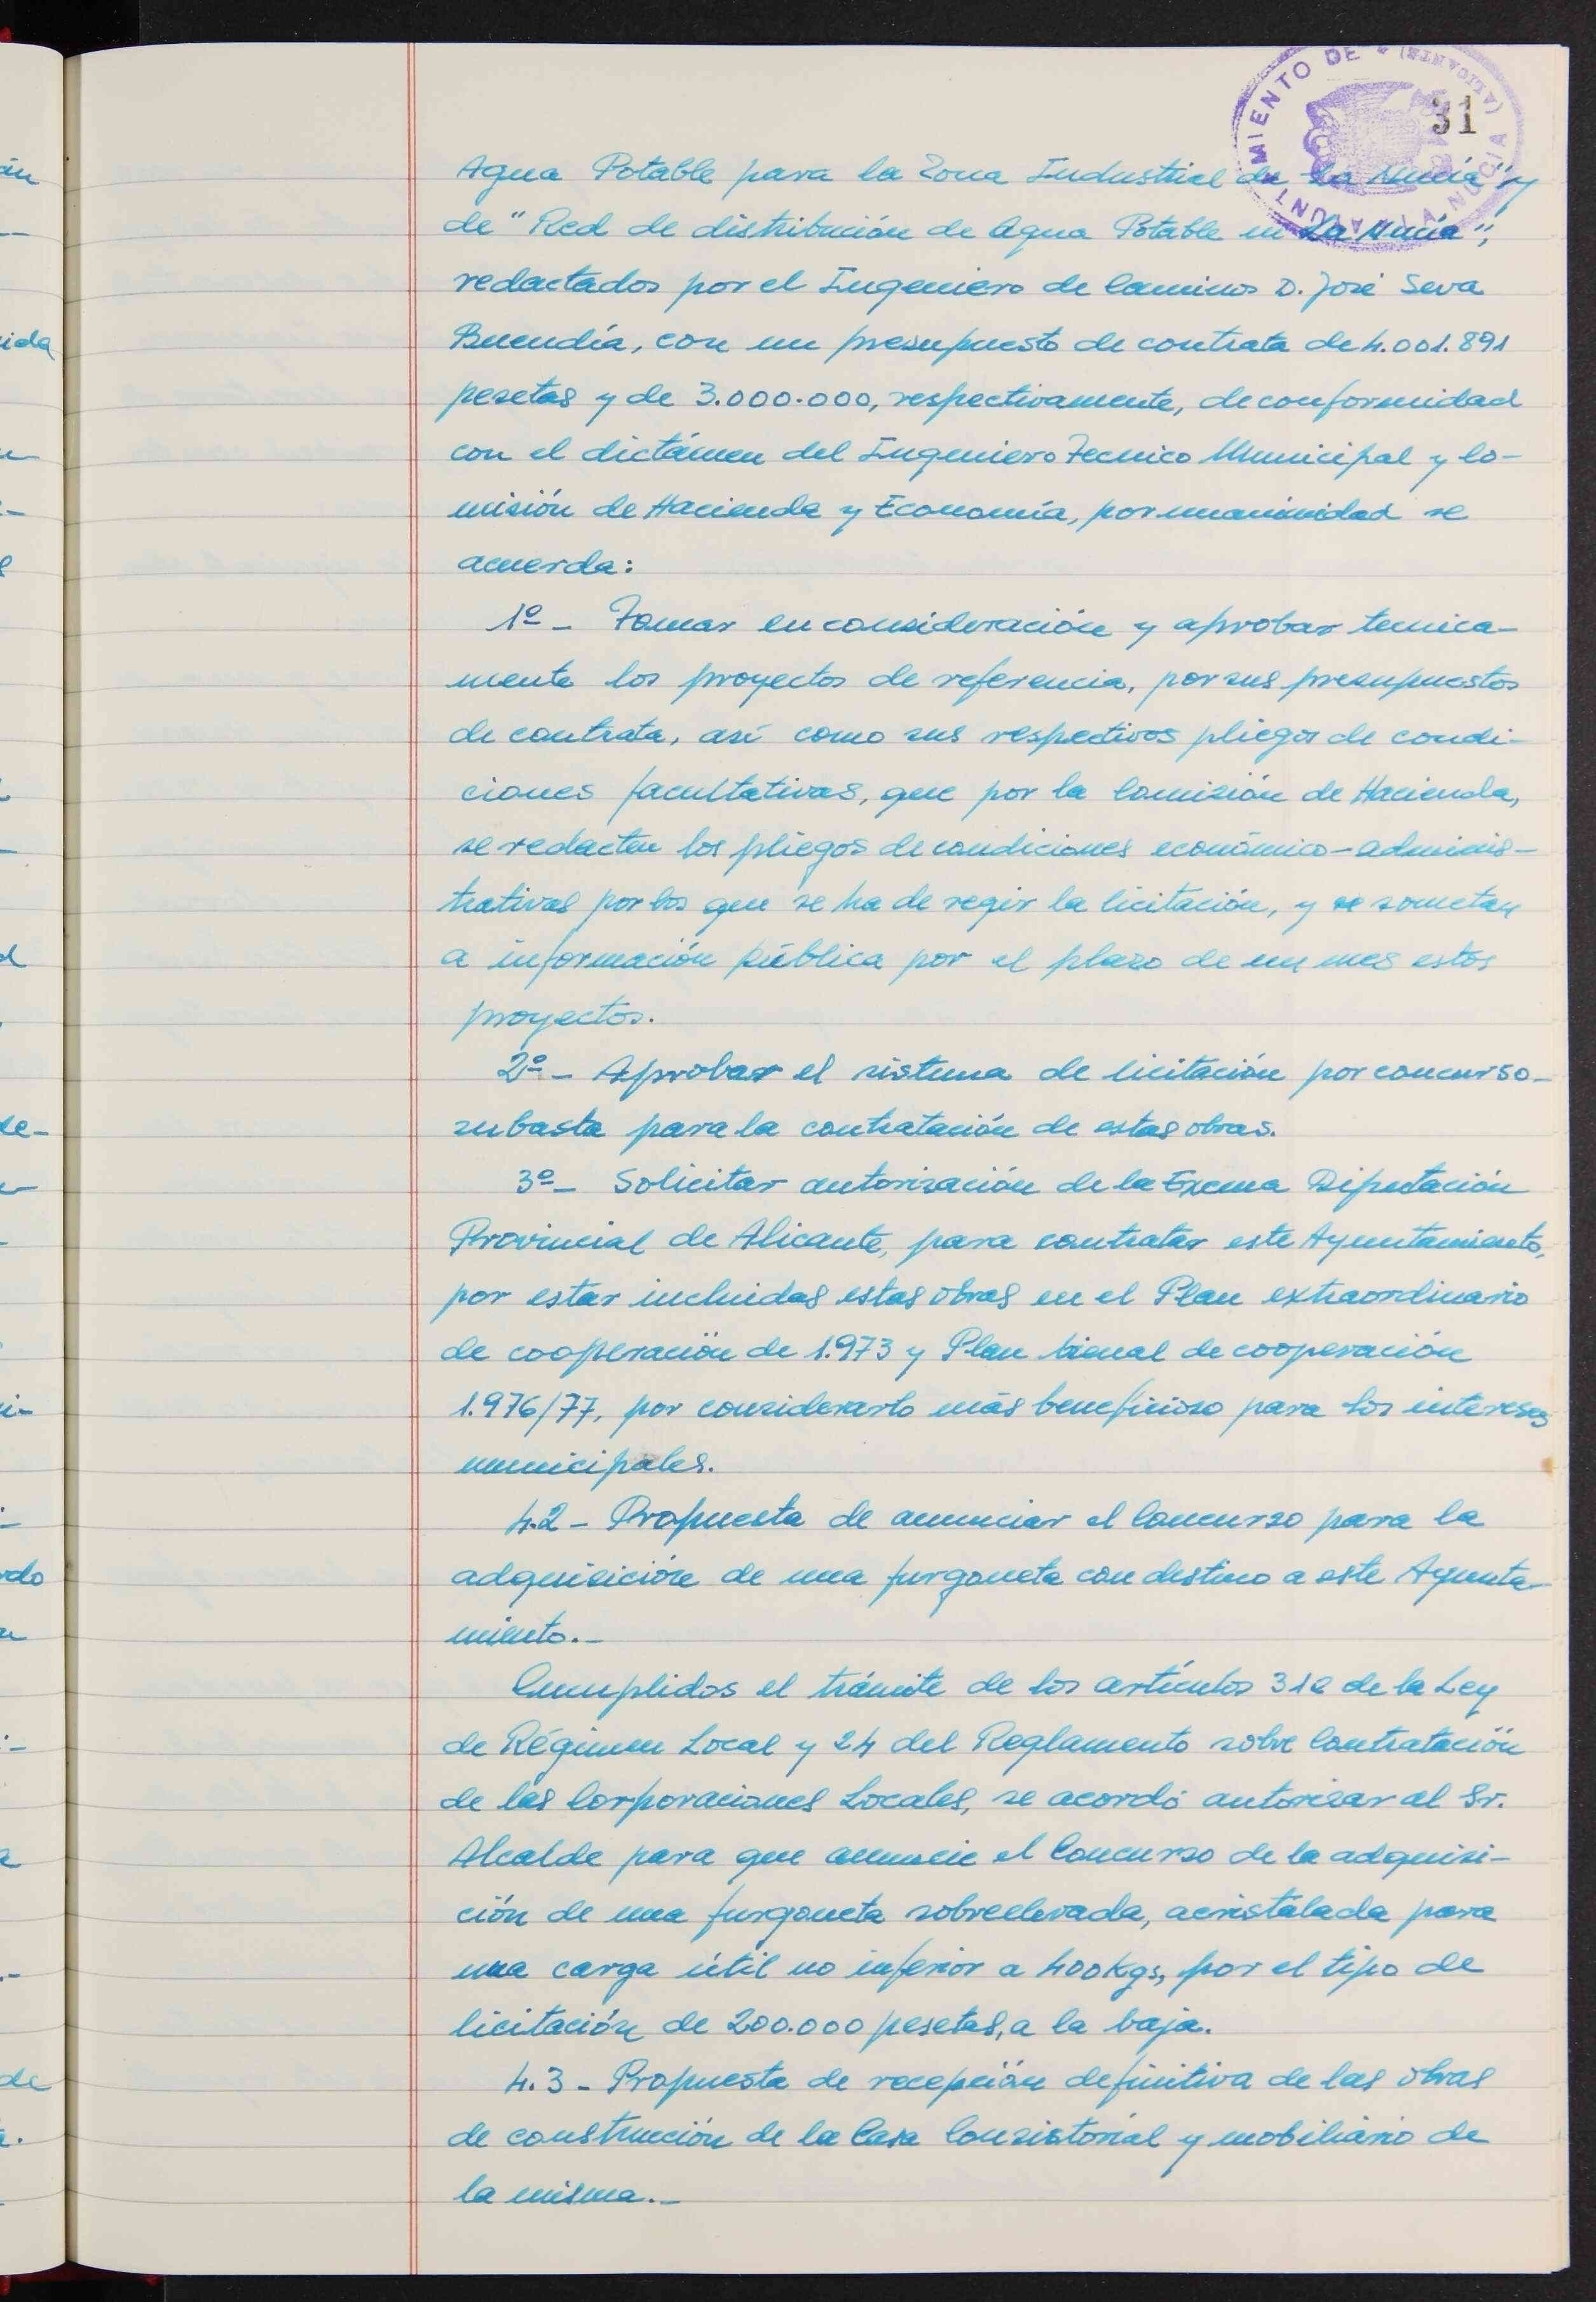 AYUNTAMIENTO DE LA NUCIA (ALICANTE)
31
Agua Potable para la Zona Industrial de La Nucia" y
de "Red de distribución de Agua Potable en La Nucia",
redactados por el Ingeniero de Caminos D. José Seva
Buendía, con un presupuesto de contrata de 4.001.891
pesetas y de 3.000.000, respectivamente, de conformidad
con el dictámen del Ingeniero Tecnico Municipal y Co-
misión de Hacienda y Economía, por unanimidad se
acuerda:
1º - Tomar en consideración y aprobar tecnica-
mente los proyectos de referencia, por sus presupuestos
de contrata, así como sus respectivos pliegos de condi-
ciones facultativas, que por la Comisión de Hacienda,
se redacten los pliegos de condiciones económico-adminis-
trativas por los que se ha de regir la licitación, y se sometan
a información pública por el plazo de un mes estos
proyectos.
2º - Aprobar el sistema de licitación por concurso-
subasta para la contratación de estas obras.
3º - Solicitar autorización de la Excma Diputación
Provincial de Alicante, para contratar este Ayuntamiento,
por estar incluidas estas obras en el Plan extraordinario
de cooperación de 1.973 y Plan bienal de cooperación
1.976/77, por considerarlo más beneficioso para los intereses
municipales.
4.2 - Propuesta de anunciar el Concurso para la
adquisición de una furgoneta con destino a este Ayunta-
miento.-
Cumplidos el trámite de los artículos 312 de la Ley
de Régimen Local y 24 del Reglamento sobre Contratación
de las Corporaciones Locales, se acordó autorizar al Sr.
Alcalde para que anuncie el Concurso de la adquisi-
ción de una furgoneta sobreelevada, acristalada para
una carga útil no inferior a 400 Kgs, por el tipo de
licitación de 200.000 pesetas, a la baja.
4.3 - Propuesta de recepción definitiva de las obras
de construcción de la Casa Consistorial y mobiliario de
la misma.-